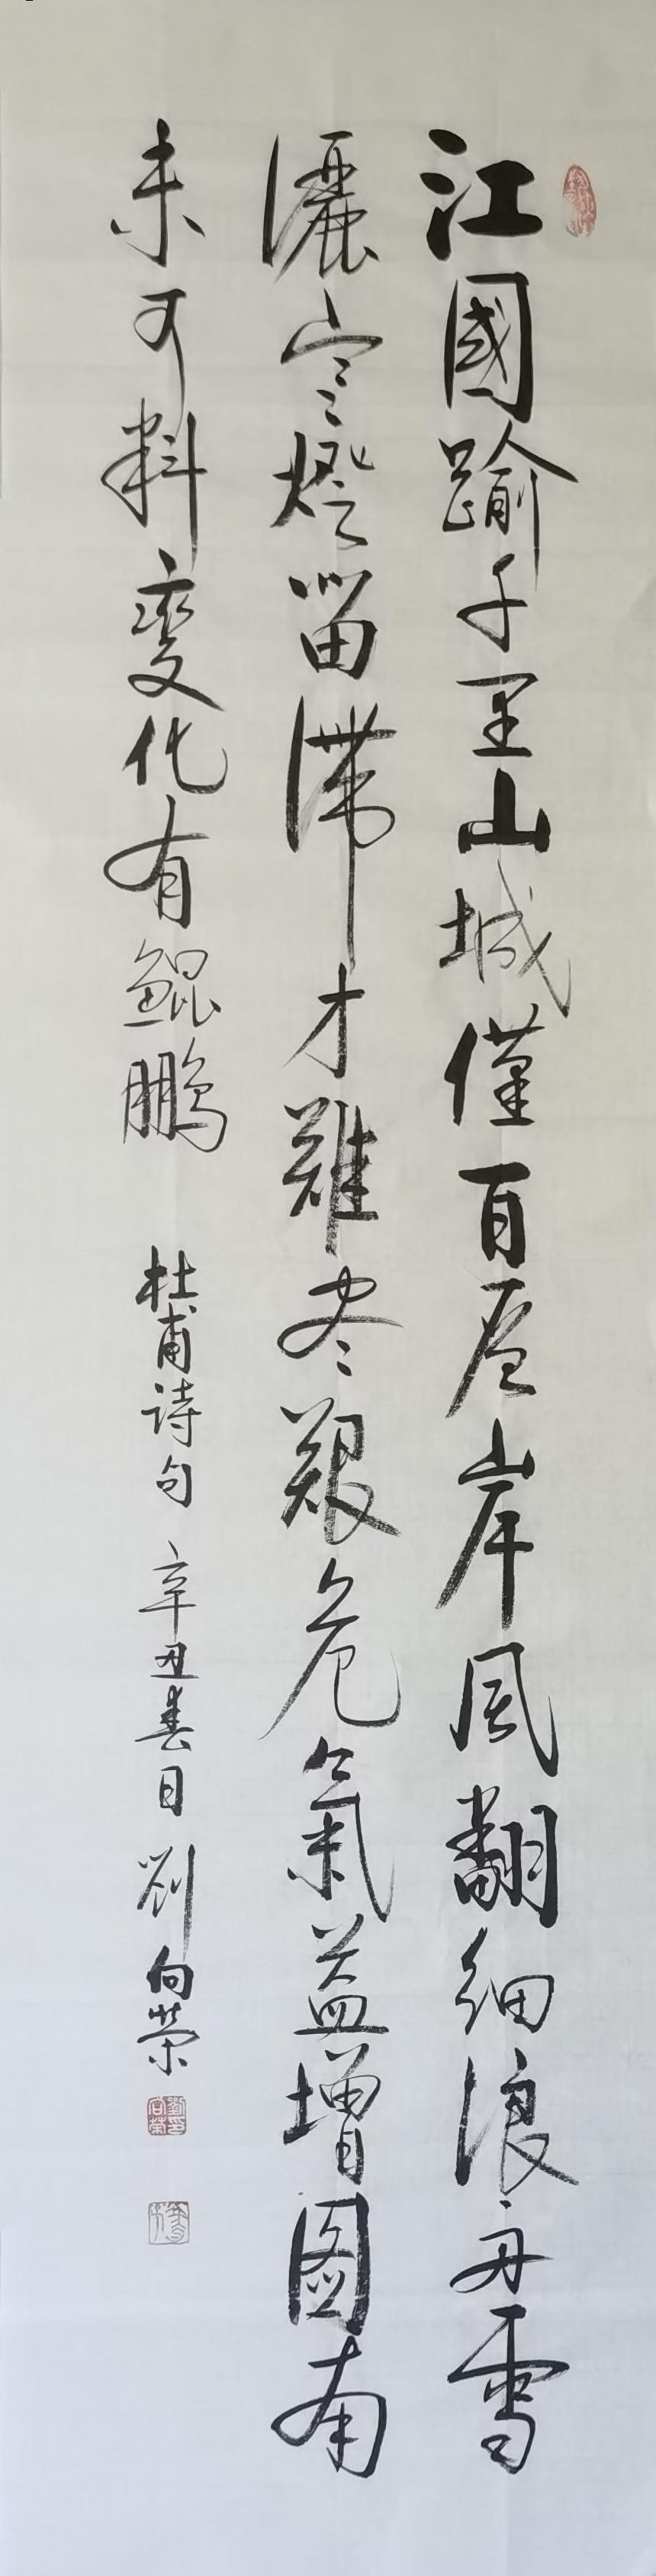 江國踰千里山城僅百層岸風翻細浪舟雪
灑寒燈留滯才難尽艱危氣益增圖南
未可料變化有鯤鵬 杜甫詩句 辛丑春日 劉向榮